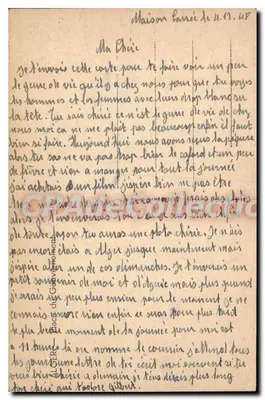 Maison Carrée le 4.12.48
Ma Chérie
Je t'envois cette carte pour te faire voir un peu
le genre de vie qu'il y a chez nous pour que tu voyes
les hommes et les femmes avec leurs drap blanc sur
la tête. Tu sais chérie ce n'est le genre de vie de chez
nous moi ça ne me plait pas beaucoup enfin il faut
bien si faire. Aujourd'hui nous avons reçu la piqure
alors tu sas ne va pas trop bien le cafard et un peu
la fièvre et rien a manger pour tout la journée
j'ai acheter un film j'espère bien ne pas être
de toute façon tu auras une photo chérie. Je n'ais
pas encore étais a Alger jusque maintenent mais
j'espère un de ces dimanches. Je t'enverais un
petit souvenir de moi et d'Algérie mais plus quand
je serais un peu plus ancien pour le moment je ne
connais encore rien enfin ce seras pour plus tard
le plus beau moment de la journée pour moi est
a 11 heures là on nomme le courrier j'attend tous
les jours une lettre de toi écrit moi souvent si tu
veux bien chérie a demain je t'en dirais plus long
ton chéri qui t'adore Gilbert